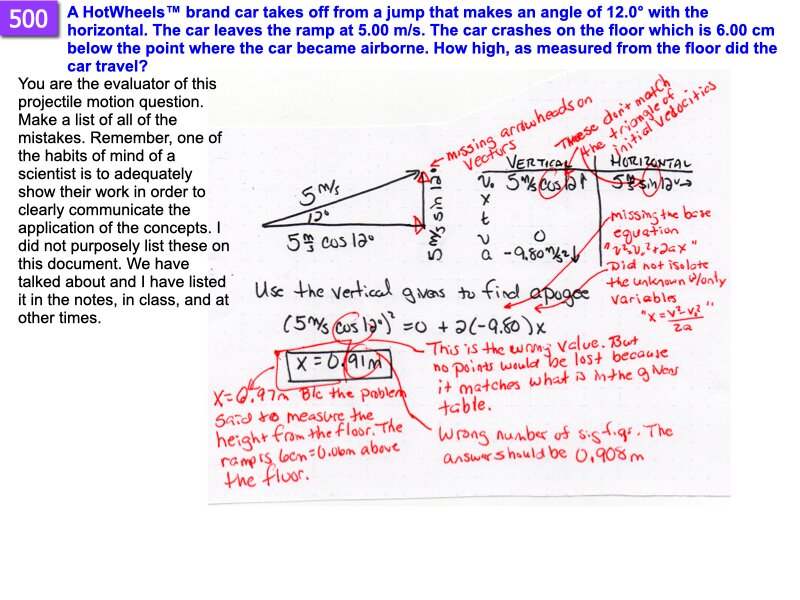 500
A HotWheels™ brand car takes off from a jump that makes an angle of 12.0° with the
horizontal. The car leaves the ramp at 5.00 m/s. The car crashes on the floor which is 6.00 cm
below the point where the car became airborne. How high, as measured from the floor did the
car travel?
You are the evaluator of this
projectile motion question.
Make a list of all of the
mistakes. Remember, one of
the habits of mind of a
scientist is to adequately
show their work in order to
clearly communicate the
application of the concepts. I
did not purposely list these on
this document. We have
talked about and I have listed
it in the notes, in class, and at
other times.
missing arrowheads on
vectors
These don't match
the triangle of
initial velocities
5 m/s
12°
5 m/s cos 12°
5 m/s sin 12°
VERTICAL HORIZONTAL
V₀ 5 m/s cos 12↑ 5 m/s sin 12°→
x
t
v 0
a -9.80 m/s²↓
missing the base
equation
"v²=v₀²+2ax"
Did not isolate
the unknown w/only
variables
"x = v²-v₀² / 2a"
Use the vertical givens to find apogee
(5 m/s cos 12°)² = 0 + 2(-9.80)x
x = 0.91m
This is the wrong value. But
no points would be lost because
it matches what is in the givens
table.
x=0.97m B/c the problem
said to measure the
height from the floor. The
ramp is 6cm=0.06m above
the floor.
Wrong number of sig figs. The
answer should be 0.908m